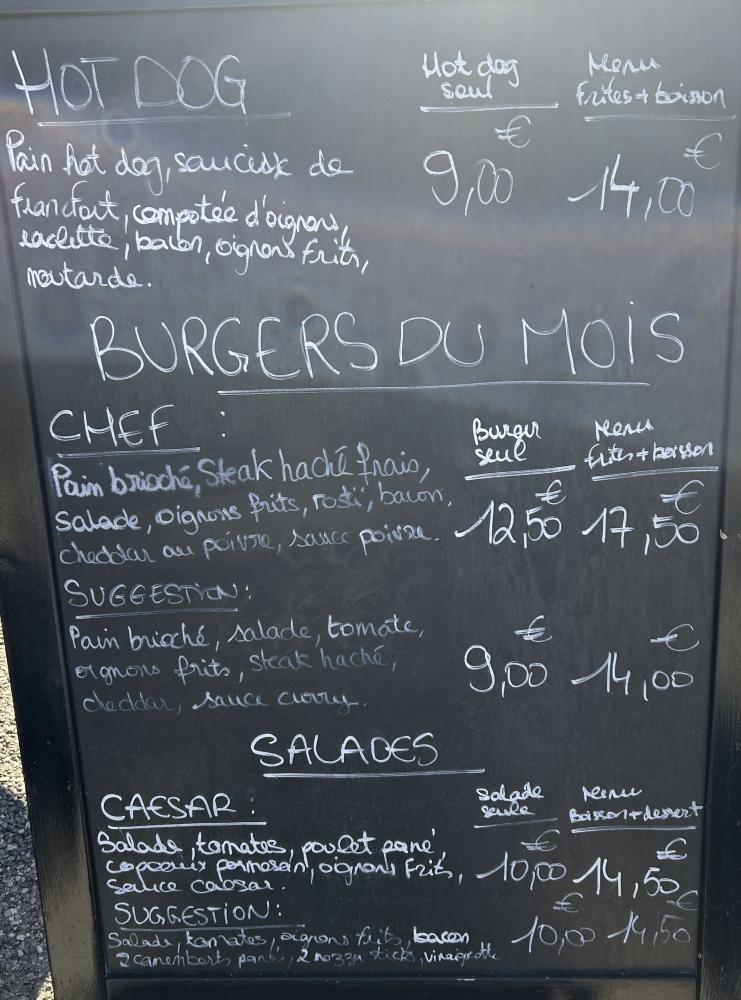 HOT DOG
Hot dog
seul
Menu
frites + boisson
Pain hot dog, saucisse de
francfort, compotée d'oignons,
raclette, bacon, oignons frits,
moutarde.
€
9,00
€
14,00
BURGERS DU MOIS
CHEF :
Burger
seul
Menu
frites + boisson
Pain brioché, Steak haché frais,
salade, oignons frits, rosti, bacon,
cheddar au poivre, sauce poivre.
€
12,50
€
17,50
SUGGESTION :
Pain brioché, salade, tomate,
oignons frits, steak haché,
cheddar, sauce curry.
€
9,00
€
14,00
SALADES
CAESAR :
salade
seule
Menu
Boisson + dessert
Salade, tomates, poulet pané,
copeaux parmesan, oignons frits,
sauce caesar.
€
10,00
€
14,50
SUGGESTION :
Salade, tomates, oignons frits, bacon
2 camemberts panés, 2 mozza sticks, vinaigrette
€
10,00
€
14,50